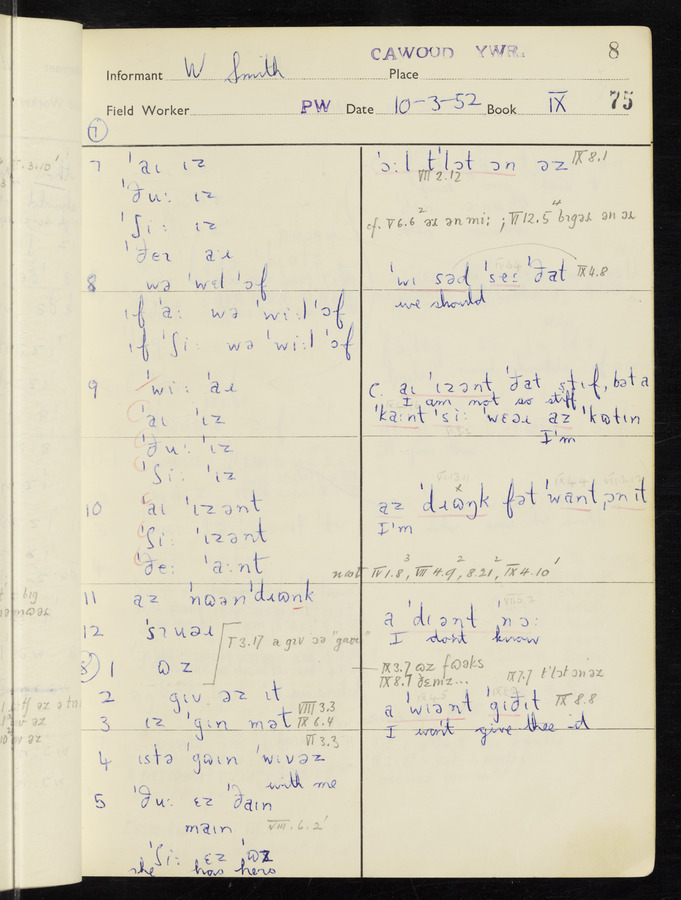 CAWOOD YWR. 8
Informant W Smith Place
Field Worker PW Date 10-3-52 Book IX 75
7
7 ˈaɪ ɪz
ˈðuː ɪz
ˈʃiː ɪz
ˈðeɪ aɹ
8 wə ˈwɛl ˈɔf
ɪf ˈaː wə ˈwiːl ˈɔf
ɪf ˈʃiː wə ˈwiːl ˈɔf
9 ˈwiː ˈaɹ
ˈaɪ ˈɪz
ˈðuː ˈɪz
ˈʃiː ˈɪz
10 ˈaɪ ˈɪzənt
ˈʃiː ˈɪzənt
ˈðeː ˈaːnt
11 az ˈnɷənˈdɹɷŋk
12
8 1 ɷz
V 3.17 a gɪv əə "gave"
2 gɪv əz ɪt VIII 3.3
3 ɪz ˈgɪn mət IX 6.4
VI 3.3
4 ɪstə ˈgɷɪn ˈwɪvəz
with me
5 ˈðuː ɛz ˈðaɪn
maɪn VIII. 6. 2'
ˈʃiː ɛz ˈɷz
she has hers
ˈɔːl tˈlɔt ɔn əz IX 8.1
VII 2.12
cf. V 6.6² əɹ ən miː ; VI 12.5⁴ bɪgəɹ ən əɹ
ˈwɪ səd ˈseɪ ˈðat IX 4.8
we should
C. aɪ ˈɪzənt ˈðat stɪf, bət a
I am not so stiff
ˈkaːnt ˈsiː ˈwɛəɹ az ˈkɷtɪn
I'm
az ˈdɹɷŋk fət ˈwant ɔn ɪt
I'm
not IV 1.8,³ VII 4.9,² 8.21,² IX 4.10'
a ˈdɪənt ˈnɔː
I don't know
IX 3.7 ɷz fɷəks IX 7.7 tˈlɔt ɔn əz
IX 8.7 ðɛmz...
a ˈwɪənt ˈgɪðɪt IX 8.8
I won't give thee -d